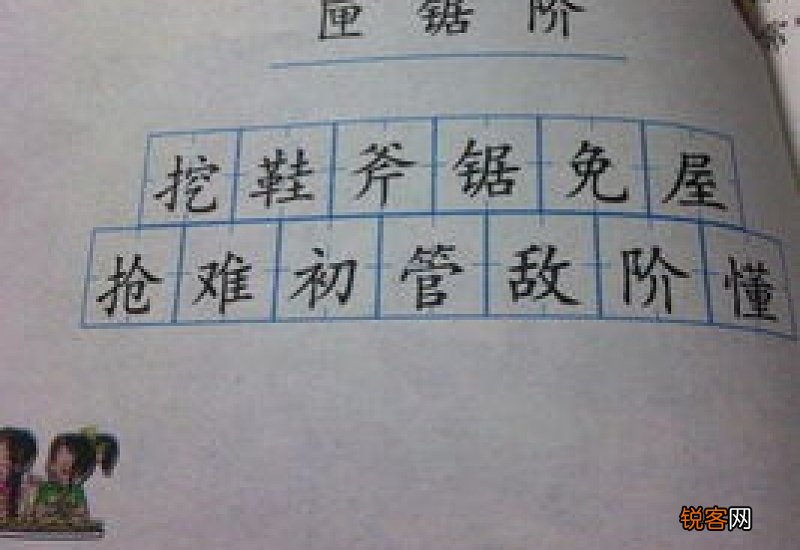 匣 锯 阶
挖 鞋 斧 锯 免 屋
抢 难 初 管 敌 阶 懂
锐客网